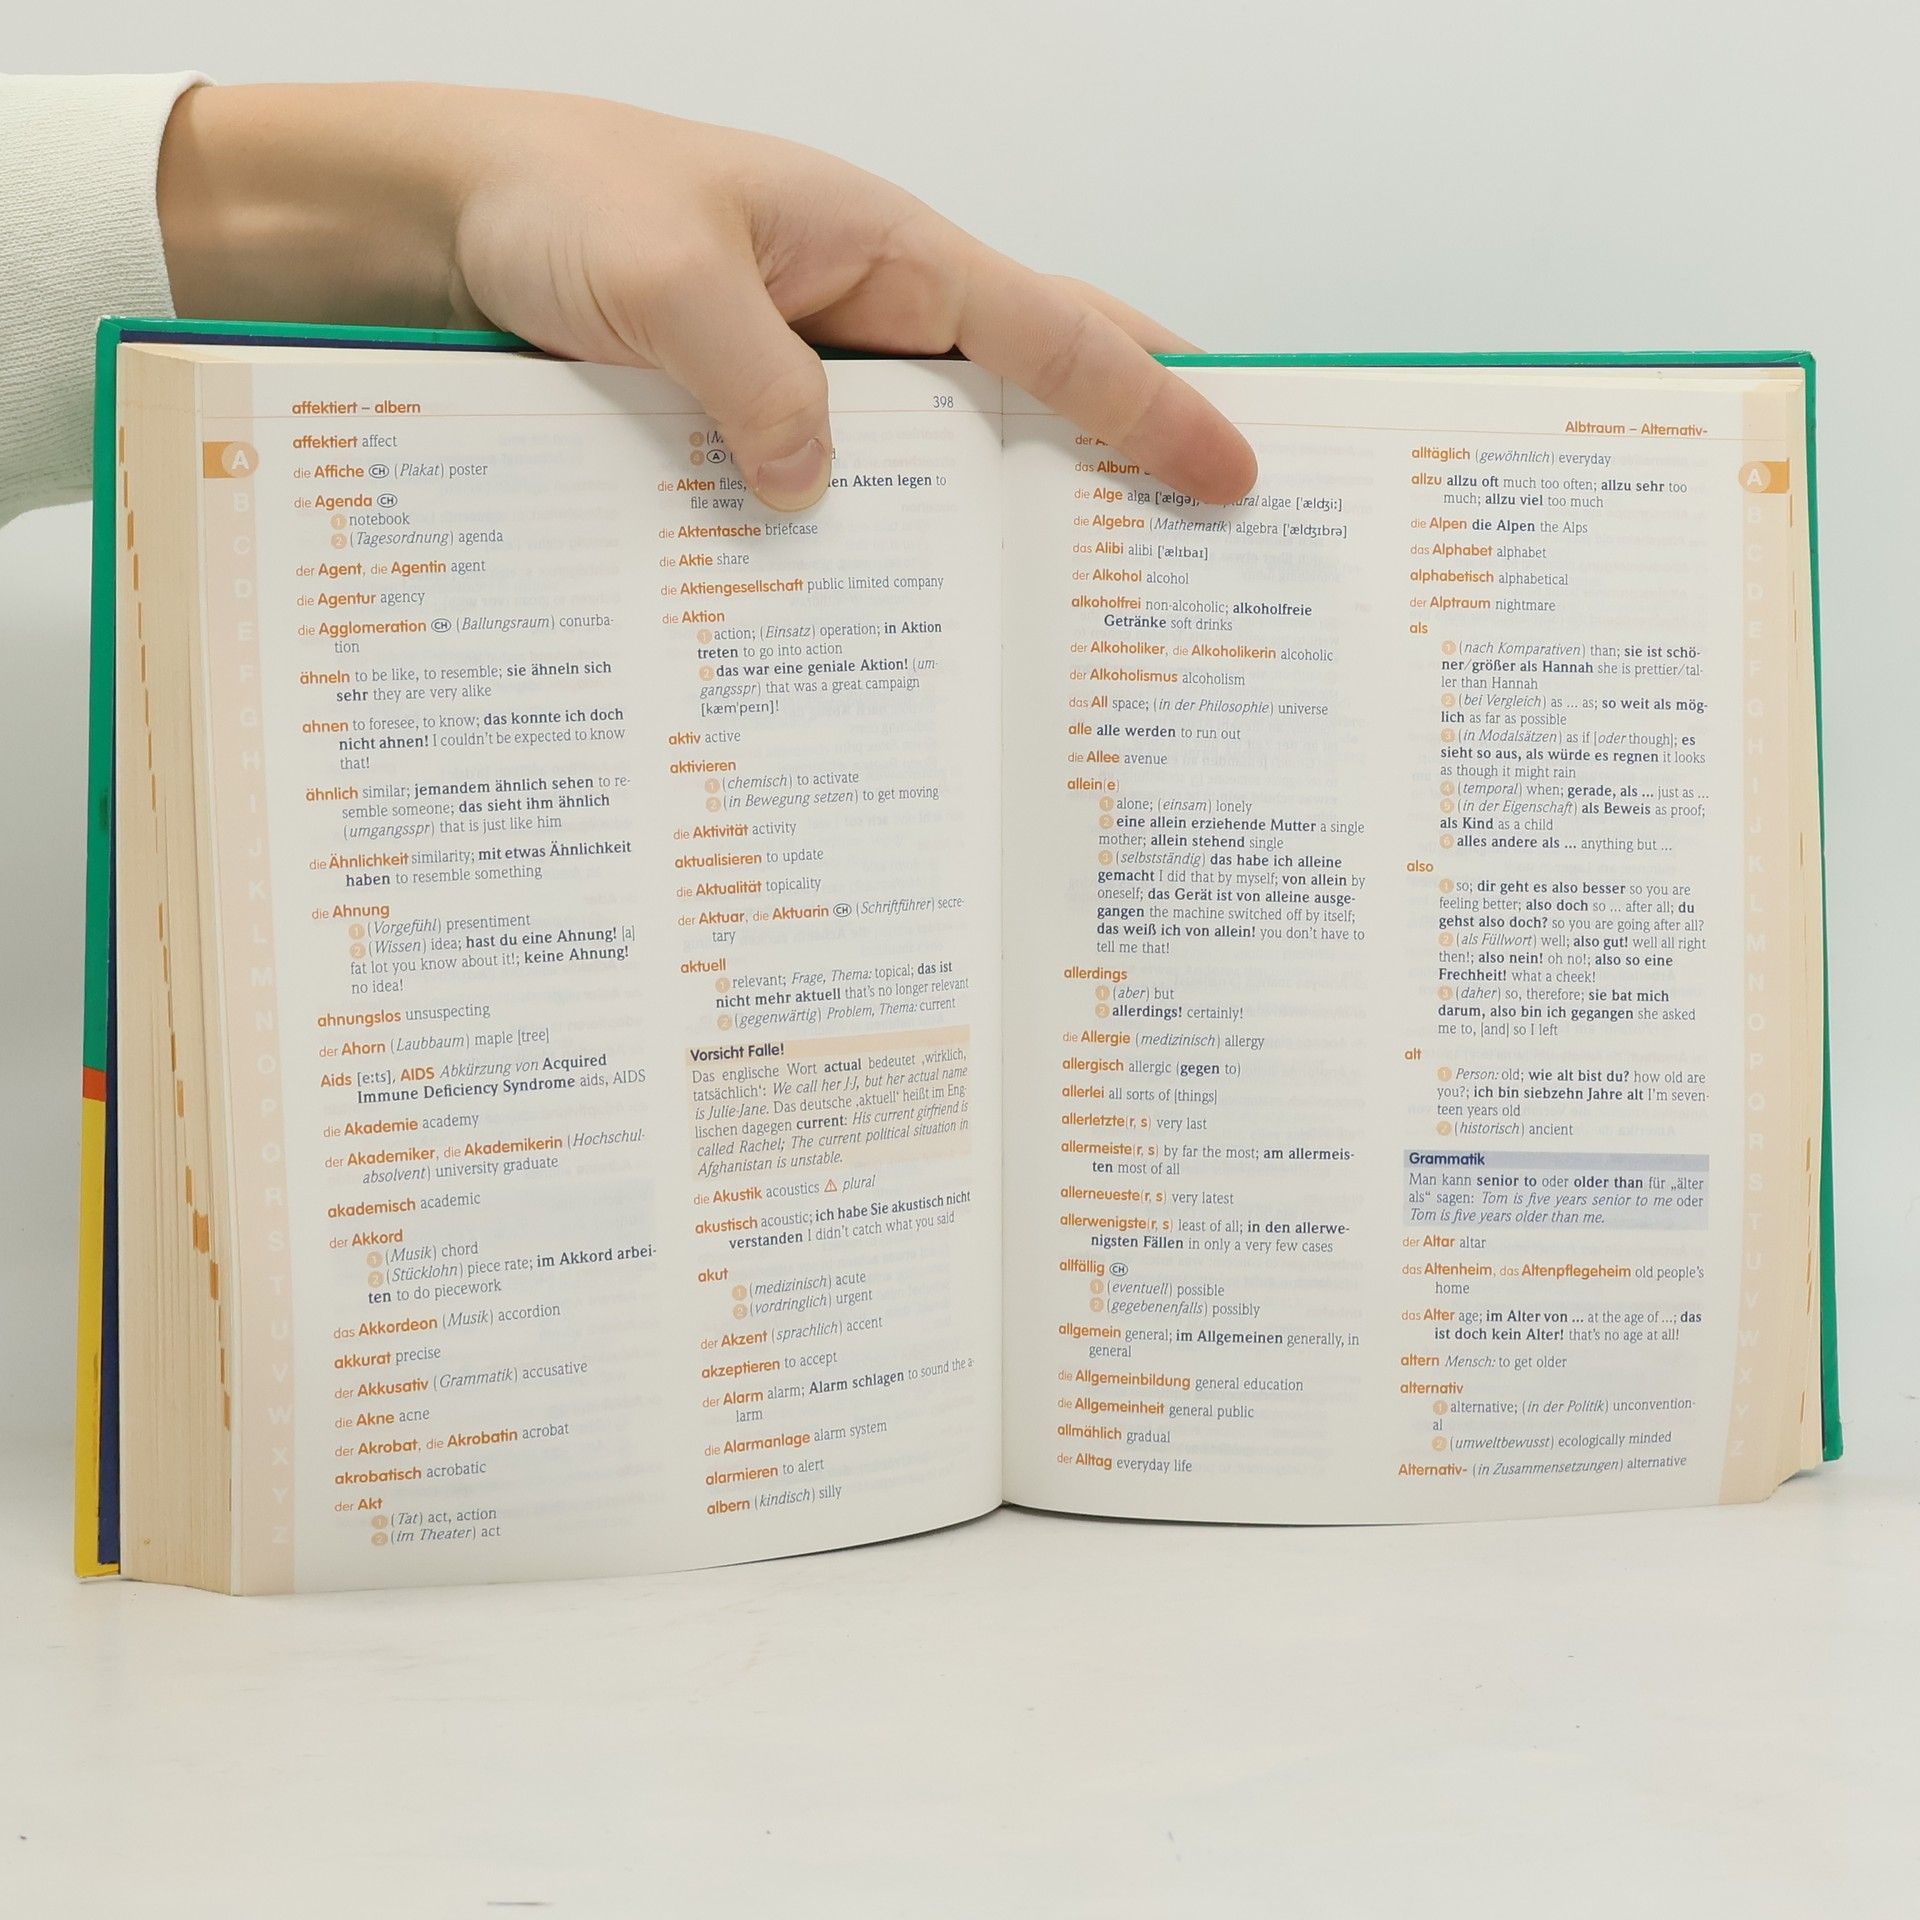 affektiert – albern
398
A
B
C
D
E
F
G
H
I
J
K
L
M
N
O
P
Q
R
S
T
U
V
W
X
Y
Z
affektiert affect
die Affiche CH (Plakat) poster
die Agenda CH
1 notebook
2 (Tagesordnung) agenda
der Agent, die Agentin agent
die Agentur agency
die Agglomeration CH (Ballungsraum) conurba-
tion
ähneln to be like, to resemble; sie ähneln sich
sehr they are very alike
ahnen to foresee, to know; das konnte ich doch
nicht ahnen! I couldn't be expected to know
that!
ähnlich similar; jemandem ähnlich sehen to re-
semble someone; das sieht ihm ähnlich
(umgangsspr) that is just like him
die Ähnlichkeit similarity; mit etwas Ähnlichkeit
haben to resemble something
die Ahnung
1 (Vorgefühl) presentiment
2 (Wissen) idea; hast du eine Ahnung! [a]
fat lot you know about it!; keine Ahnung!
no idea!
ahnungslos unsuspecting
der Ahorn (Laubbaum) maple [tree]
Aids [e:ts], AIDS Abkürzung von Acquired
Immune Deficiency Syndrome aids, AIDS
die Akademie academy
der Akademiker, die Akademikerin (Hochschul-
absolvent) university graduate
akademisch academic
der Akkord
1 (Musik) chord
2 (Stücklohn) piece rate; im Akkord arbei-
ten to do piecework
das Akkordeon (Musik) accordion
akkurat precise
der Akkusativ (Grammatik) accusative
die Akne acne
der Akrobat, die Akrobatin acrobat
akrobatisch acrobatic
der Akt
1 (Tat) act, action
2 (im Theater) act
3 (M
4 A (
die Akten files, en Akten legen to
file away
die Aktentasche briefcase
die Aktie share
die Aktiengesellschaft public limited company
die Aktion
1 action; (Einsatz) operation; in Aktion
treten to go into action
2 das war eine geniale Aktion! (um-
gangsspr) that was a great campaign
[kæm'peɪn]!
aktiv active
aktivieren
1 (chemisch) to activate
2 (in Bewegung setzen) to get moving
die Aktivität activity
aktualisieren to update
die Aktualität topicality
der Aktuar, die Aktuarin CH (Schriftführer) secre-
tary
aktuell
1 relevant; Frage, Thema: topical; das ist
nicht mehr aktuell that's no longer relevant
2 (gegenwärtig) Problem, Thema: current
Vorsicht Falle!
Das englische Wort actual bedeutet ‚wirklich,
tatsächlich': We call her J-J, but her actual name
is Julie-Jane. Das deutsche ‚aktuell' heißt im Eng-
lischen dagegen current: His current girlfriend is
called Rachel; The current political situation in
Afghanistan is unstable.
die Akustik acoustics ⚠ plural
akustisch acoustic; ich habe Sie akustisch nicht
verstanden I didn't catch what you said
akut
1 (medizinisch) acute
2 (vordringlich) urgent
der Akzent (sprachlich) accent
akzeptieren to accept
der Alarm alarm; Alarm schlagen to sound the a-
larm
die Alarmanlage alarm system
alarmieren to alert
albern (kindisch) silly
Albtraum – Alternativ-
der
das Album
die Alge alga ['ælgə], algae ['ældʒi:]
die Algebra (Mathematik) algebra ['ældʒɪbrə]
das Alibi alibi ['ælɪbaɪ]
der Alkohol alcohol
alkoholfrei non-alcoholic; alkoholfreie
Getränke soft drinks
der Alkoholiker, die Alkoholikerin alcoholic
der Alkoholismus alcoholism
das All space; (in der Philosophie) universe
alle alle werden to run out
die Allee avenue
allein(e)
1 alone; (einsam) lonely
2 eine allein erziehende Mutter a single
mother; allein stehend single
3 (selbstständig) das habe ich alleine
gemacht I did that by myself; von allein by
oneself; das Gerät ist von alleine ausge-
gangen the machine switched off by itself;
das weiß ich von allein! you don't have to
tell me that!
allerdings
1 (aber) but
2 allerdings! certainly!
die Allergie (medizinisch) allergy
allergisch allergic (gegen to)
allerlei all sorts of [things]
allerletzte(r, s) very last
allermeiste(r, s) by far the most; am allermeis-
ten most of all
allerneueste(r, s) very latest
allerwenigste(r, s) least of all; in den allerwe-
nigsten Fällen in only a very few cases
allfällig CH
1 (eventuell) possible
2 (gegebenenfalls) possibly
allgemein general; im Allgemeinen generally, in
general
die Allgemeinbildung general education
die Allgemeinheit general public
allmählich gradual
der Alltag everyday life
alltäglich (gewöhnlich) everyday
allzu allzu oft much too often; allzu sehr too
much; allzu viel too much
die Alpen die Alpen the Alps
das Alphabet alphabet
alphabetisch alphabetical
der Alptraum nightmare
als
1 (nach Komparativen) than; sie ist schö-
ner/größer als Hannah she is prettier/tal-
ler than Hannah
2 (bei Vergleich) as ... as; so weit als mög-
lich as far as possible
3 (in Modalsätzen) as if [oder though]; es
sieht so aus, als würde es regnen it looks
as though it might rain
4 (temporal) when; gerade, als ... just as ...
5 (in der Eigenschaft) als Beweis as proof;
als Kind as a child
6 alles andere als ... anything but ...
also
1 so; dir geht es also besser so you are
feeling better; also doch so ... after all; du
gehst also doch? so you are going after all?
2 (als Füllwort) well; also gut! well all right
then!; also nein! oh no!; also so eine
Frechheit! what a cheek!
3 (daher) so, therefore; sie bat mich
darum, also bin ich gegangen she asked
me to, [and] so I left
alt
1 Person: old; wie alt bist du? how old are
you?; ich bin siebzehn Jahre alt I'm seven-
teen years old
2 (historisch) ancient
Grammatik
Man kann senior to oder older than für „älter
als“ sagen: Tom is five years senior to me oder
Tom is five years older than me.
der Altar altar
das Altenheim, das Altenpflegeheim old people's
home
das Alter age; im Alter von ... at the age of ...; das
ist doch kein Alter! that's no age at all!
altern Mensch: to get older
alternativ
1 alternative; (in der Politik) unconvention-
al
2 (umweltbewusst) ecologically minded
Alternativ- (in Zusammensetzungen) alternative
A
B
C
D
E
F
G
H
I
J
K
L
M
N
O
P
Q
R
S
T
U
V
W
X
Y
Z